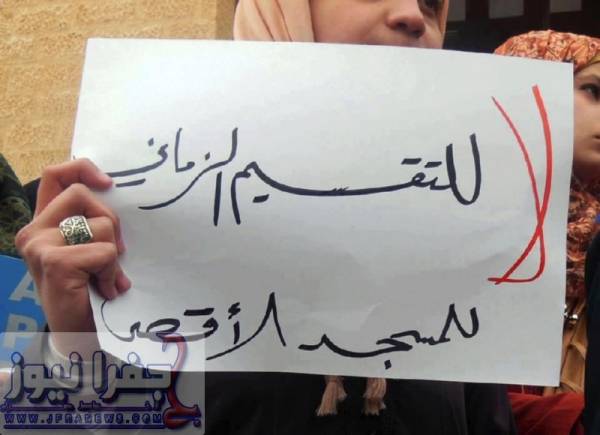 لا
للتقسيم الزماني
للمسجد الأقصى
جفرا نيوز
WWW.JFRANEWS.COM